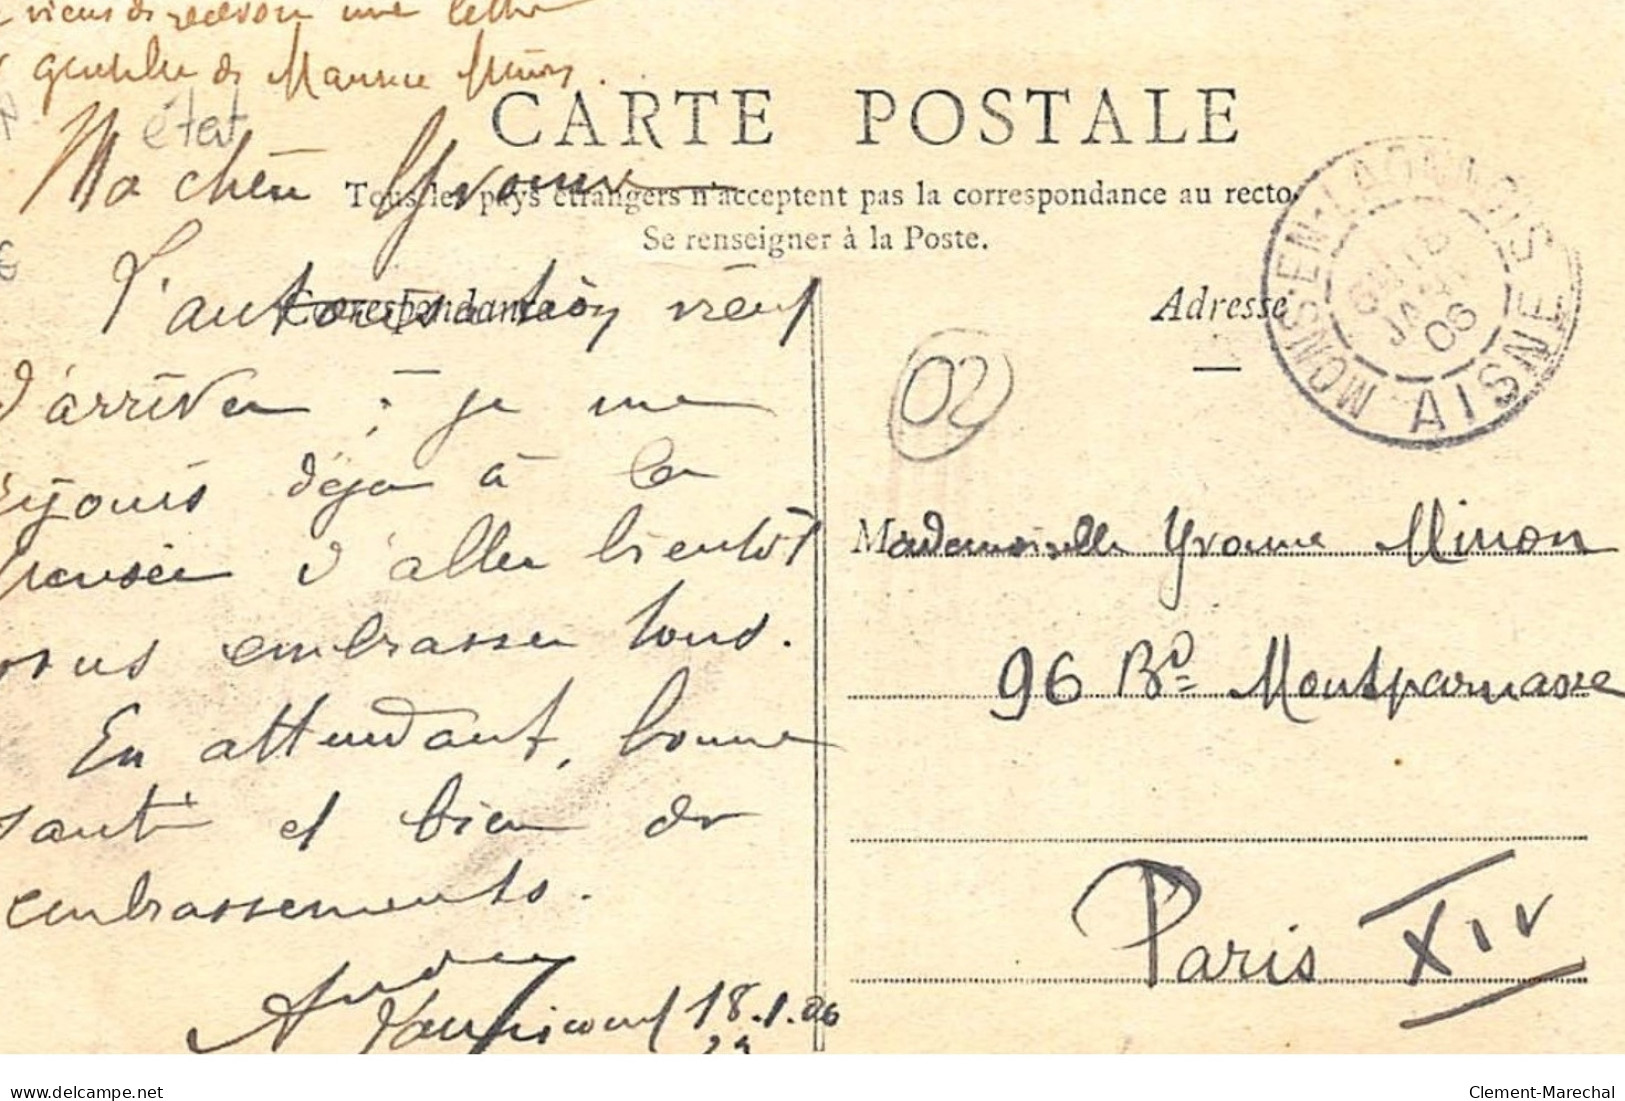 viens de recevoir une lettre
de Maurice
CARTE POSTALE
état
Ma chère Yvonne
Tous les pays étrangers n'acceptent pas la correspondance au recto.
Se renseigner à la Poste.
L'autorisation vient
Correspondance
d'arriver ; je me
réjouis déjà à la
pensée d'aller bientôt
vous embrasser tous.
En attendant, bonne
santé et bien de
embrassements.
18.1.06
Adresse
MONS-EN-LAONNOIS
JANV
06
AISNE
02
Mademoiselle Yvonne Minon
96 Bd Montparnasse
Paris XIV
delcampe.net
Clement-Marechal